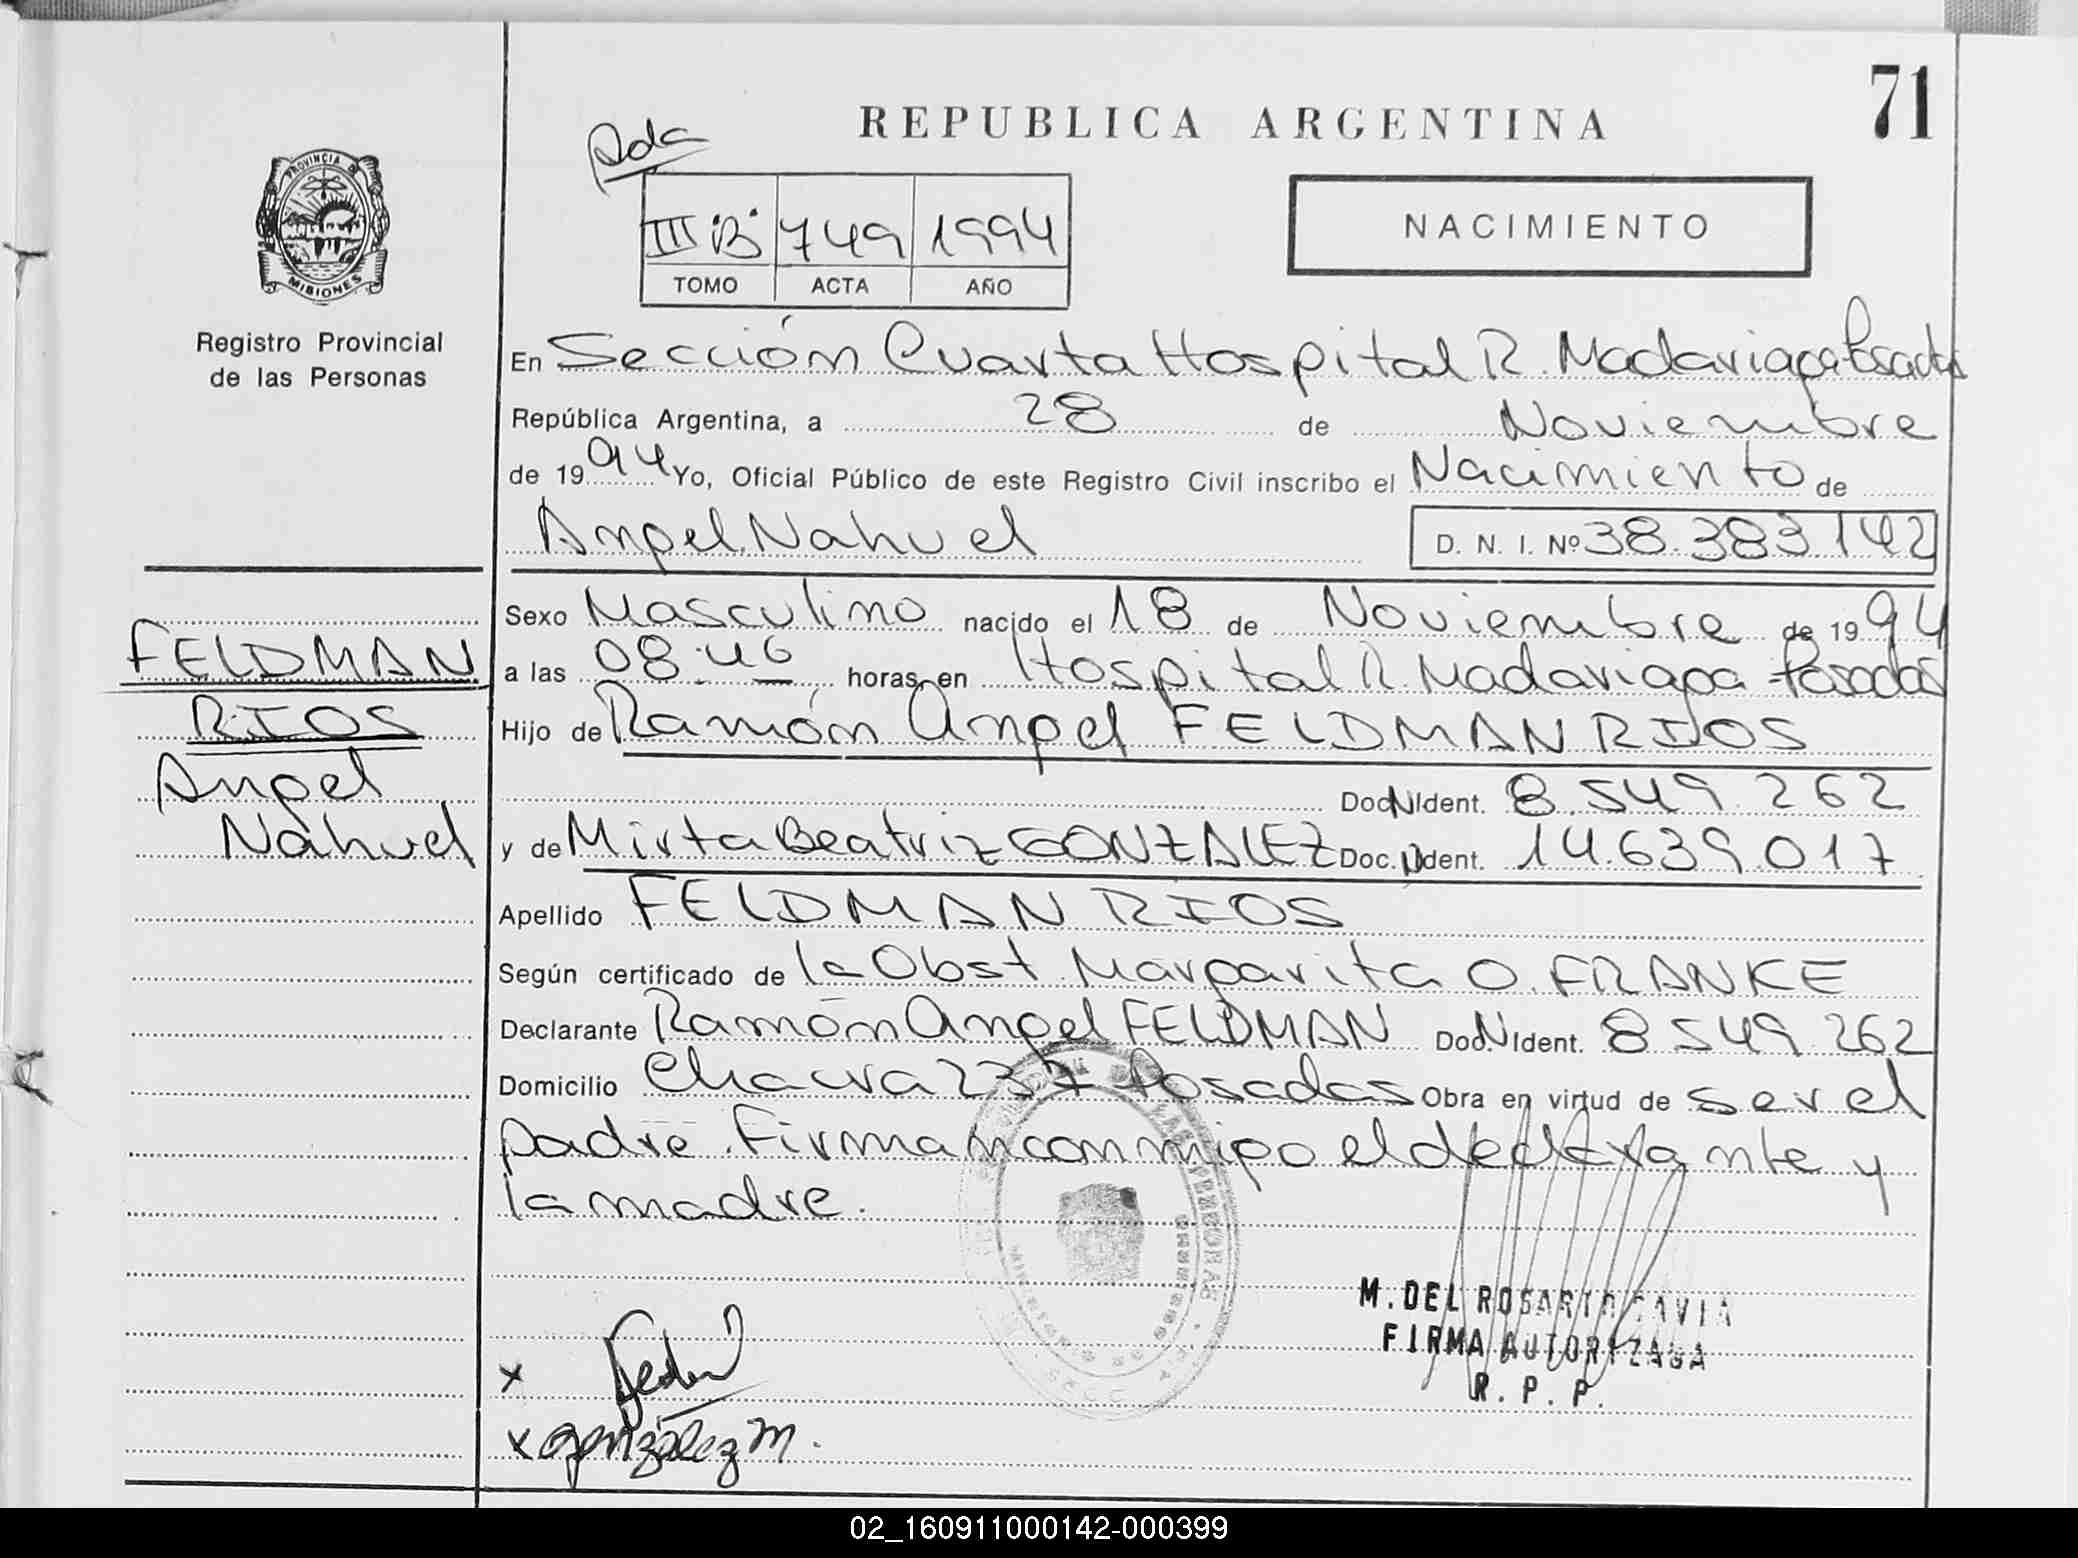 71
REPUBLICA ARGENTINA
Pdas
III "B" 749 1994
TOMO ACTA AÑO
NACIMIENTO
PROVINCIA DE
MISIONES
Registro Provincial
de las Personas
En Sección Cuarta Hospital R. Madariaga Posadas
República Argentina, a 28 de Noviembre
de 1994 Yo, Oficial Público de este Registro Civil inscribo el Nacimiento de
Angel Nahuel D. N. I. Nº 38.383.142
FELDMAN
RIOS
Angel
Nahuel
Sexo Masculino nacido el 18 de Noviembre de 1994
a las 08:46 horas, en Hospital R. Madariaga Posadas
Hijo de Ramón Angel FELDMAN RIOS
Doc. N Ident. 8.549.262
y de Mirta Beatriz GONZALEZ Doc. N Ident. 14.639.017
Apellido FELDMAN RIOS
Según certificado de la Obst. Margarita O. FRANKE
Declarante Ramón Angel FELDMAN Doc. N Ident. 8.549.262
Domicilio 237 Posadas Obra en virtud de ser el
padre. Firman conmigo el declarante y
la madre.
M. DEL ROSARIO GAVIA
FIRMA AUTORIZADA
R. P. P.
x
x Gonzalez M.
02_160911000142-000399